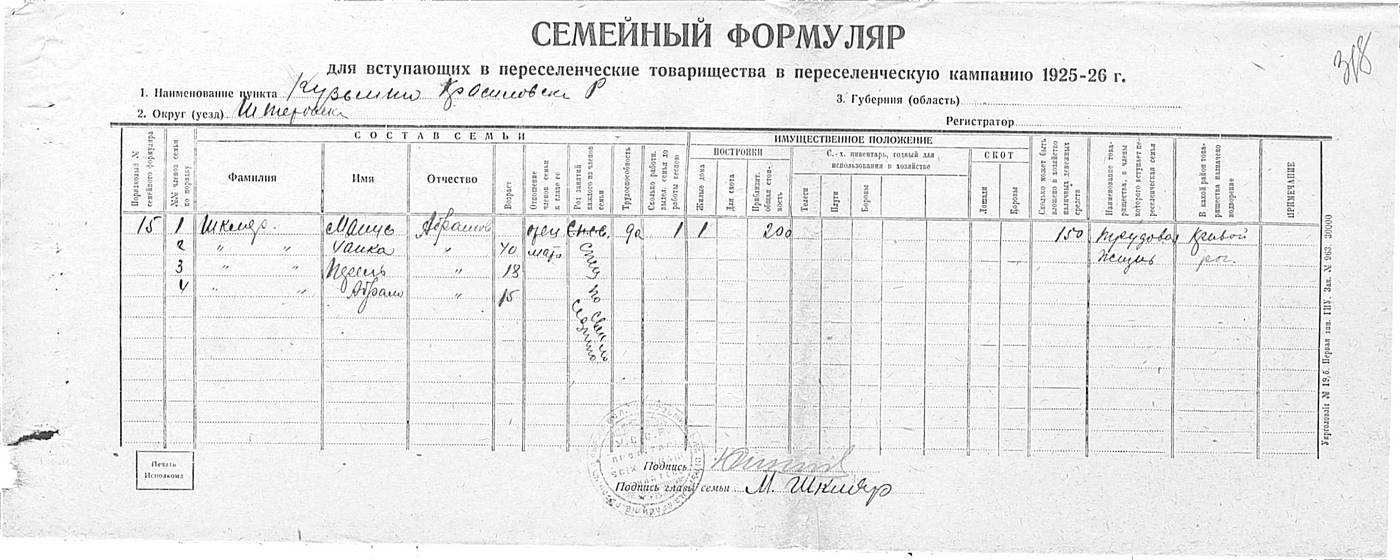 318
СЕМЕЙНЫЙ ФОРМУЛЯР
для вступающих в переселенческие товарищества в переселенческую кампанию 1925-26 г.
1. Наименование пункта Кузьмин Красиловск Р
3. Губерния (область)
2. Округ (уезд)
Регистратор
СОСТАВ СЕМЬИ
ИМУЩЕСТВЕННОЕ ПОЛОЖЕНИЕ
Порядковый № семейного формуляра
№№ членов семьи по порядку
Фамилия
Имя
Отчество
Возраст
Отношение членов семьи к главе ее
Род занятий каждого из членов семьи
Трудоспособность
Сколько работн. выдел. семья до работы весною
ПОСТРОЙКИ
Жилые дома
Для скота
Приблизит. общая стоимость
С.-х. инвентарь, годный для использования в хозяйстве
Телеги
Плуги
Бороны
СКОТ
Лошади
Коровы
Сколько может быть вложено в хозяйство наличных денежных средств
Наименование товарищества, в члены которого вступает переселенческая семья
В какой район товарищества назначено водворение
ПРИМЕЧАНИЕ
15 1 Шкляр Абрамов да 1 1 200 150 Трудовая Кривой
2 " " " 40 мать жизнь рог
3 " " " 18
4 " " Абрам " 15
Укрголовліт № 19,б. Первая тип. ГПУ. Зак. № 963. 20000
Печать Исполкома
Подпись
Подпись главы семьи М. Шкляр